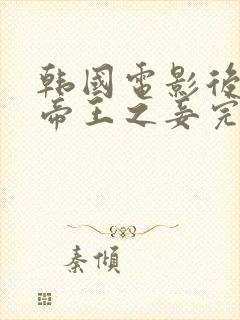 韩國電影後
帝王之妾完
秦傾